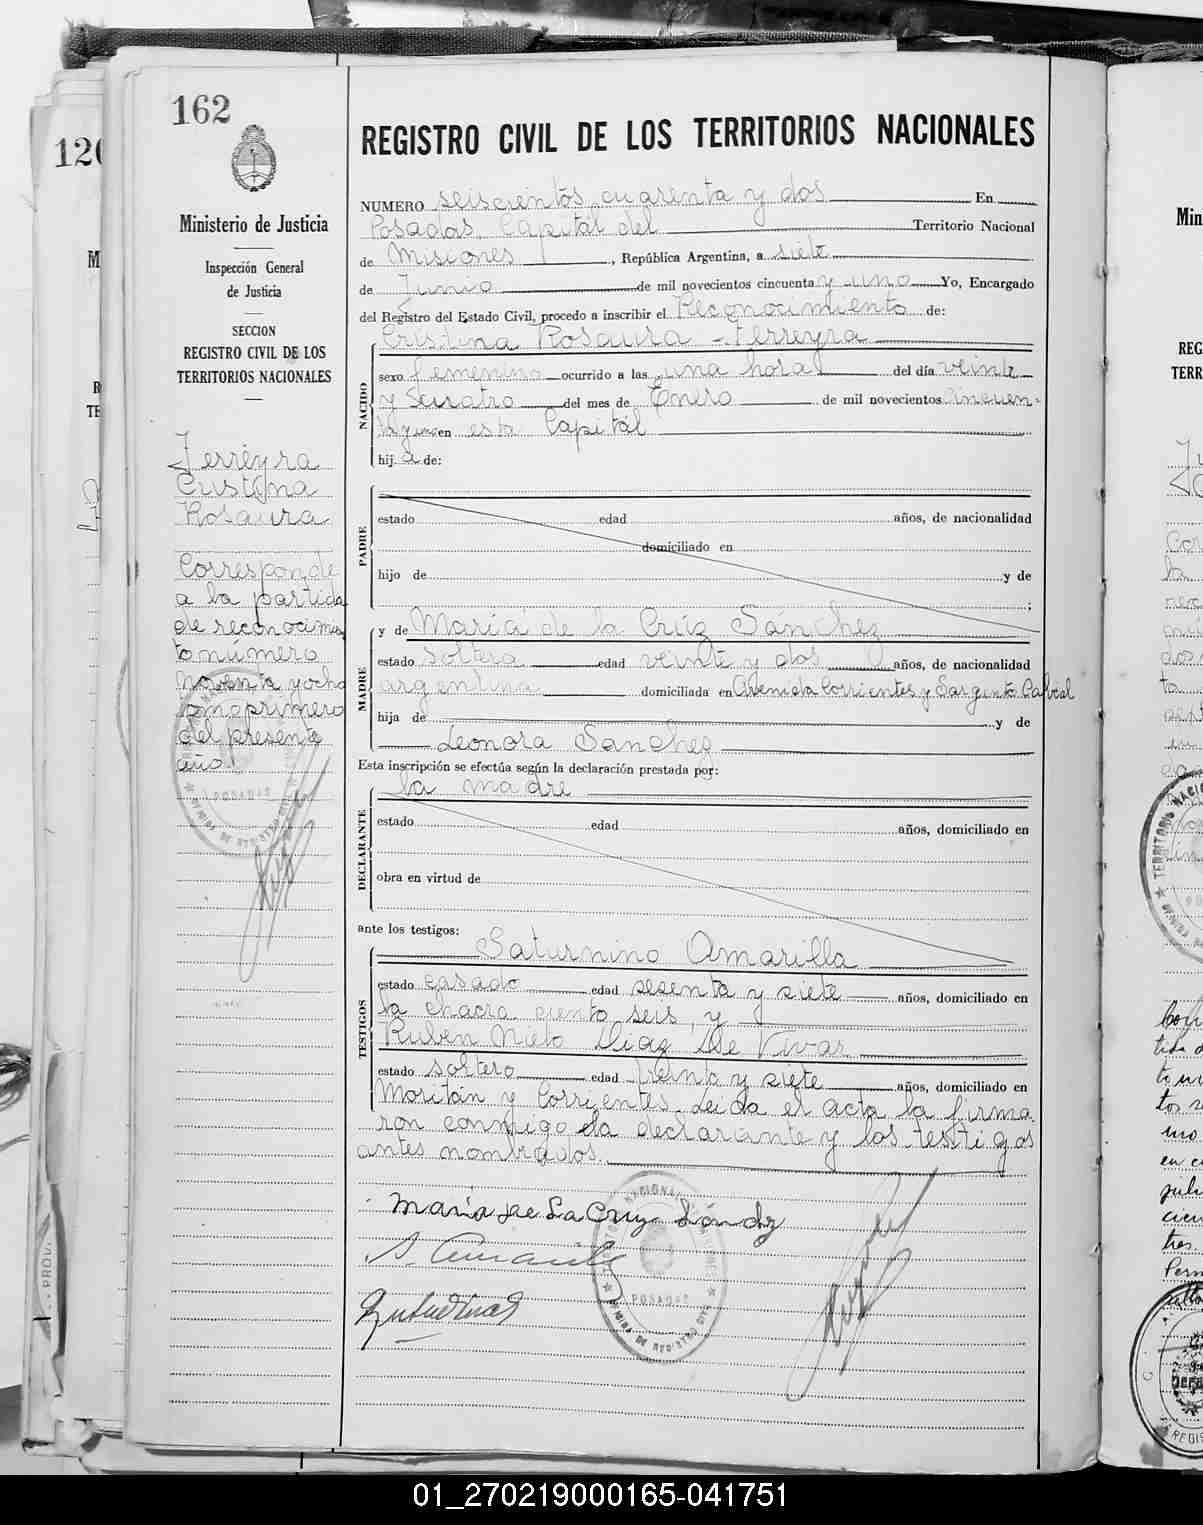 162
REGISTRO CIVIL DE LOS TERRITORIOS NACIONALES
Ministerio de Justicia
Inspección General
de Justicia
SECCION
REGISTRO CIVIL DE LOS
TERRITORIOS NACIONALES
Ferreyra
Cristina
Rosaura
Corresponde
a la partida
de reconocimien
to número
noventa y ocho
tomo primero
del presente
año.
NUMERO seiscientos cuarenta y dos En
Posadas, Capital del Territorio Nacional
de Misiones, República Argentina, a siete
de Junio de mil novecientos cincuenta y uno Yo, Encargado
del Registro del Estado Civil, procedo a inscribir el Reconocimiento de:
Cristina Rosaura Ferreyra
NACIDO
sexo femenino ocurrido a las una hora del día veinte
y cuatro del mes de Enero de mil novecientos cincuen-
ta y uno en esta Capital
hija de:
PADRE
estado edad años, de nacionalidad
domiciliado en
hijo de y de
;
MADRE
y de María de la Cruz Sánchez
estado soltera edad veinte y dos años, de nacionalidad
argentina domiciliada en Avenida Corrientes y Sargento Cabral
hija de y de
Leonora Sanchez
Esta inscripción se efectúa según la declaración prestada por:
la madre
DECLARANTE
estado edad años, domiciliado en
obra en virtud de
ante los testigos:
TESTIGOS
Saturnino Amarilla
estado casado edad sesenta y siete años, domiciliado en
la chacra ciento seis, y
Ruben Nieto Diaz De Vivar
estado soltero edad treinta y siete años, domiciliado en
Moritán y Corrientes. Leida el acta la firma
ron conmigo la declarante y los testigos
antes nombrados.
María de La Cruz Sánchez
S. Amarilla
POSADAS
01_270219000165-041751